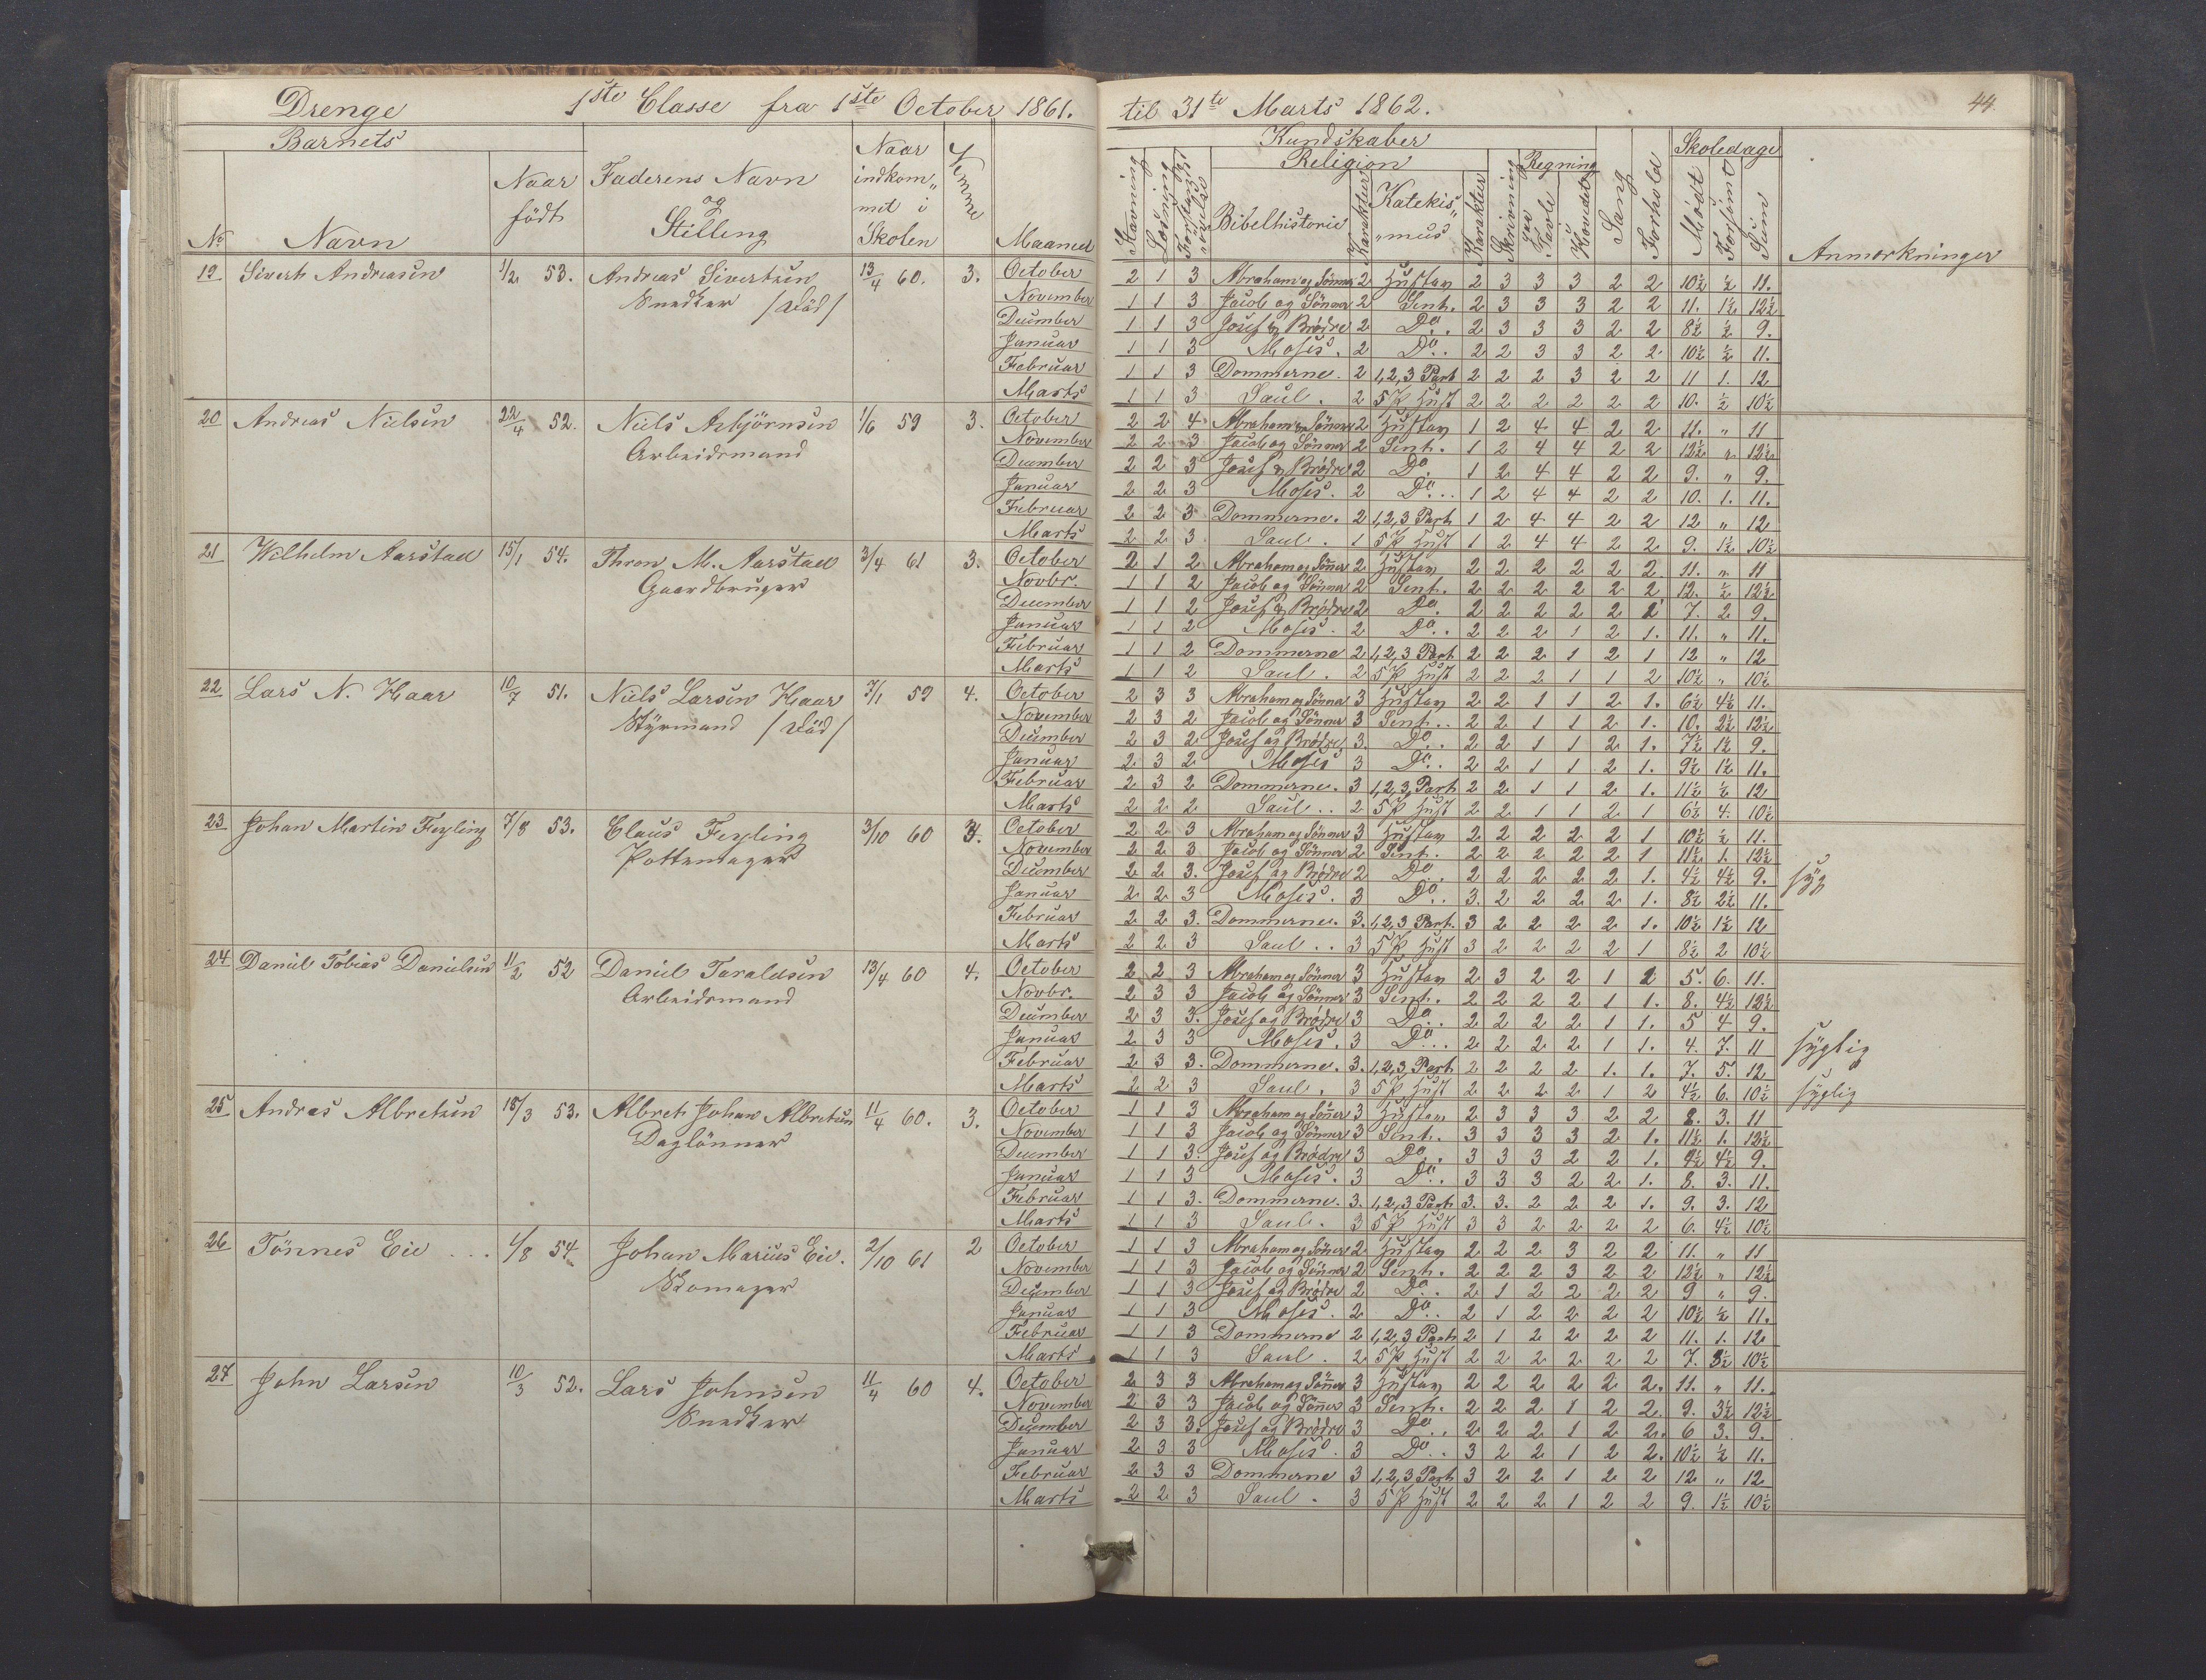 Drenge 1ste Classe fra 1ste October 1861. til 31te Marts 1862. 44.
Barnets Kundskaber Skoledage
Religion Regning
No Navn Naar født Faderens Navn og Stilling Naar indkommet i Skolen Nemme Maaned Stavning Læsning Bibelhistorie Karakteer Katekismus Karakteer Skrivning paa Tavle i Hovedet Sang Forhold Mødt Forsømt Sum Anmærkninger
19 Sivert Andreasen 1/2 53. Andreas Sivertsen Snedker /død/ 13/4 60. 3.
October 2 1 3 Abraham og Sønner 2 Hustav 2 3 3 3 2 2 10½ ½ 11.
November 1 1 3 Jacob og Sønner 2 Sent. 2 3 3 3 2 2 11. 1½ 12½
December 1 1 3 Josef og Brødre 2 Do.. 2 3 3 3 2 2 8½ ½ 9.
Januar 1 1 3 Moses. 2 Do.. 2 2 3 3 2 2 10½ ½ 11.
Februar 1 1 3 Dommerne. 2 1,2,3 Part 2 2 2 3 2 2 11 1. 12
Marts 1 1 3 Saul. 2 5 P Hust 2 2 2 2 2 2 10. ½ 10½
20 Andreas Nielsen 22/4 52. Niels Asbjørnsen Arbeidsmand 1/6 59 3.
October 2 2 4 Abraham og Sønner 2 Hustav 1 2 4 4 2 2 11. " 11
November 2 2 3 Jacob og Sønner 2 Sent. 1 2 4 4 2 2 12½ " 12½
December 2 2 3 Josef og Brødre 2 Do. 1 2 4 4 2 2 9. " 9.
Januar 2 2 3 Moses. 2 Do... 1 2 4 4 2 2 10. 1. 11.
Februar 2 2 3 Dommerne. 2 1,2,3 Part 1 2 4 4 2 2 12 " 12
Marts 2 2 3 Saul. 1 5 P Hust 1 2 4 4 2 2 9. 1½ 10½
21 Wilhelm Aarstad 15/1 54. Thron M. Aarstad Gaardbruger 3/4 61 3.
October 2 1 2 Abraham og Sønner 2 Hustav 2 2 2 2 2 2 11. " 11
Novbr. 1 1 2 Jacob og Sønner 2 Sent. 2 2 2 2 2 2 12. ½ 12½
December 1 1 2 Josef og Brødre 2 Do. 2 2 2 2 2 2 7. 2. 9.
Januar 1 1 2 Moses. 2 Do.. 2 2 2 1 2 1. 11. " 11.
Februar 1 1 2 Dommerne 2 1,2,3 Part 2 2 2 1 2 1 12 " 12
Marts 1 1 2 Saul. 2 5 P Hust 2 2 2 1 1 2 10½ " 10½
22 Lars N. Haar 10/7 51. Niels Larsen Haar Styrmand /død/ 7/1 59 4.
October 2 3 3 Abraham og Sønner 3 Hustav 2 2 1 1 2 1. 6½ 4½ 11.
November 2 3 2 Jacob og Sønner 3 Sent.. 2 2 1 1 2 1. 10. 2½ 12½
December 2 3 2 Josef og Brødre 3. Do.. 2 2 1 1 2 1. 7½ 1½ 9.
Januar 2 3 2 Moses 3 Do.. 2 2 1 1 2 1. 9½ 1½ 11.
Februar 2 3 2 Dommerne. 3 1,2,3 Part 2 2 1 1 2 1. 11½ ½ 12
Marts 2 2 2 Saul.. 2 5 P Hust 2 2 1 1 2 1 6½ 4. 10½
23 Johan Martin Feyling 7/8 53. Claus Feyling Pottemager 3/10 60 3.
October 2 2 3 Abraham og Sønner 3 Hustav 2 2 2 2 2 1 10½ ½ 11.
November 2 2 3 Jacob og Sønner 2 Sent. 2 2 2 2 2 1 11½ 1. 12½
December 2 2 3. Josef og Brødre 2 Do.. 2 2 2 2 2 1. 4½ 4½ 9. syg
Januar 2 2 3 Moses. 3 Do.. 3. 2 2 2 2 1. 8½ 2½ 11.
Februar 2 2 3. Dommerne. 3. 1,2,3 Part. 3 2 2 2 2 1. 10½ 1½ 12
Marts 2 2 3 Saul.. 3 5 P Hust 3 2 2 2 2 1 8½ 2 10½
24 Daniel Tobias Danielsen 11/2 52 Daniel Taraldsen Arbeidsmand 13/4 60 4.
October 2 2 3 Abraham og Sønner 3 Hustav 2 3 2 2 1 2 5. 6. 11.
Novbr. 2 3 3 Jacob og Sønner 3 Sent. 2 2 2 2 1 1. 8. 4½ 12½
December 2 3 3. Josef og Brødre 3 Do.. 2 2 2 2 1 1. 5 4 9.
Januar 2 3 3 Moses. 3 Do... 2 2 2 2 1 1. 4. 7. 11 syglig
Februar 2 3 3. Dommerne. 3. 1,2,3 Part 2 2 2 2 1. 1. 7. 5. 12
Marts 2 2 3 Saul. 3 5 P Hust 2 2 2 2 1 2 4½ 6. 10½ syglig
25 Andreas Albretsen 15/3 53. Albret Johan Albretsen Daglønner 11/4 60. 3.
October 1 1 3 Abraham og Sønner 3 Hustav 2 3 3 3 2 2 8. 3. 11
November 1 1 3 Jacob og Sønner 3 Sent. 3 3 3 3 2 1. 11½ 1. 12½
December 1 1 3. Josef og Brødre 3 Do.. 3 3 3 2 2 1. 4½ 4½ 9.
Januar 1 1 3 Moses. 3 Do.. 3 3 3 2 2 1. 8. 3. 11.
Februar 1 1 3. Dommerne. 3. 1,2,3 Part 3. 3. 2 2 2 1. 9. 3. 12
Marts 1 1 3 Saul. 3 5 P Hust 3 3 2 2 2 2 6. 4½ 10½
26 Tönnes Eie ... 4/8 54. Johan Marius Eie. Skomager 2/10 61 2
October 1 1 3 Abraham og Sønner 2 Hustav 2 2 2 3 2 2 11. " 11
November 1 1 3 Jacob og Sønner 2 Sent. 2 2 2 3 2 2 12½ " 12½
December 1 1 3 Josef og Brødre 2 Do.. 2 1 2 2 2 2 9 " 9.
Januar 1 1 3 Moses. 2 Do.. 2 1 2 2 2 2 10½ ½ 11.
Februar 1 1 3 Dommerne 2 1,2,3 Part 2 1 2 2 2 2 11. 1. 12
Marts 1 1 3 Saul. 2 5 P Hust 2 2 2 2 2 2 7. 3½ 10½
27 John Larsen 10/3 52. Lars Johnsen Snedker 11/4 60 4.
October 2 3 3 Abraham og Sønner 3 Hustav 2 2 2 2 2 2. 11. " 11.
November 2 3 3 Jacob og Sønner 3 Sent. 2 2 2 1 2 2. 9. 3½ 12½
December 2 3 3. Josef og Brødre 3 Do.. 2 2 2 1 2 2. 6 3. 9.
Januar 2 3 3 Moses. 3 Do.. 3 2 2 1 2 2. 10½ ½ 11.
Februar 2 3 3 Dommerne 3 1,2,3 Part 3 2 2 1 2 2 12. " 12
Marts 2 2 3 Saul. 3 5 P Hust 2 2 2 1 2 2 9. 1½ 10½